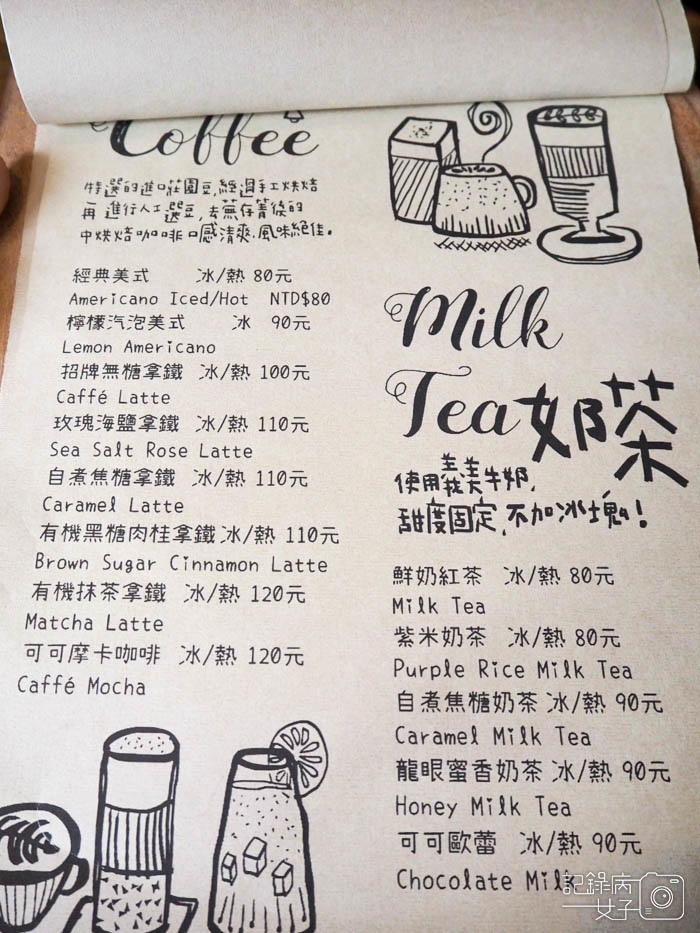 Coffee
特選的進口莊園豆,經過手工烘焙
再進行人工選豆,去蕪存菁後的
中烘焙咖啡口感清爽,風味絕佳。
經典美式 冰/熱 80元
Americano Iced/Hot NTD$80
檸檬汽泡美式 冰 90元
Lemon Americano
招牌無糖拿鐵 冰/熱 100元
Caffé Latte
玫瑰海鹽拿鐵 冰/熱 110元
Sea Salt Rose Latte
自煮焦糖拿鐵 冰/熱 110元
Caramel Latte
有機黑糖肉桂拿鐵 冰/熱 110元
Brown Sugar Cinnamon Latte
有機抹茶拿鐵 冰/熱 120元
Matcha Latte
可可摩卡咖啡 冰/熱 120元
Caffé Mocha
Milk
Tea 奶茶
使用義美牛奶,
甜度固定,不加冰塊!
鮮奶紅茶 冰/熱 80元
Milk Tea
紫米奶茶 冰/熱 80元
Purple Rice Milk Tea
自煮焦糖奶茶 冰/熱 90元
Caramel Milk Tea
龍眼蜜香奶茶 冰/熱 90元
Honey Milk Tea
可可歐蕾 冰/熱 90元
Chocolate Milk
記錄病
女子